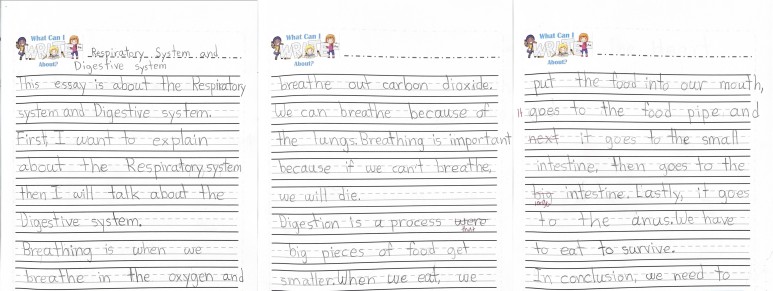 What Can I
WRITE
About?
Respiratory System and
Digestive system
This essay is about the Respiratory
system and Digestive system.
First, I want to explain
about the Respiratory system
then I will talk about the
Digestive system.
Breathing is when we
breathe in the oxygen and
What Can I
WRITE
About?
breathe out carbon dioxide.
We can breathe because of
the lungs. Breathing is important
because if we can't breathe,
we will die.
Digestion is a process were
that
big pieces of food get
smaller. When we eat, we
What Can I
WRITE
About?
put the food into our mouth,
It goes to the food pipe and
next it goes to the small
intestine, then goes to the
big intestine. Lastly, it goes
large
to the anus. We have
to eat to survive.
In conclusion, we need to